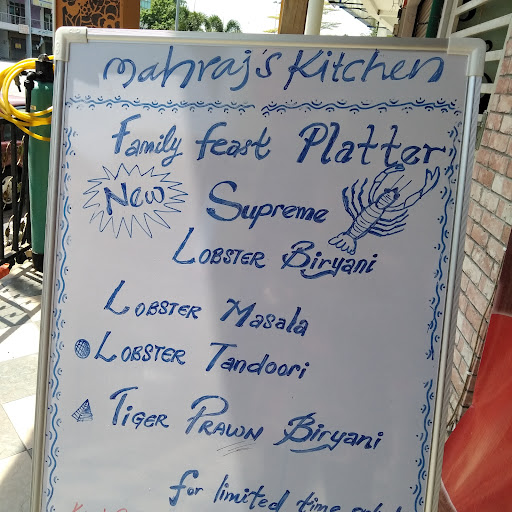 Mahraj's Kitchen
Family feast Platter
New Supreme
Lobster Biryani
Lobster Masala
Lobster Tandoori
Tiger Prawn Biryani
for limited time